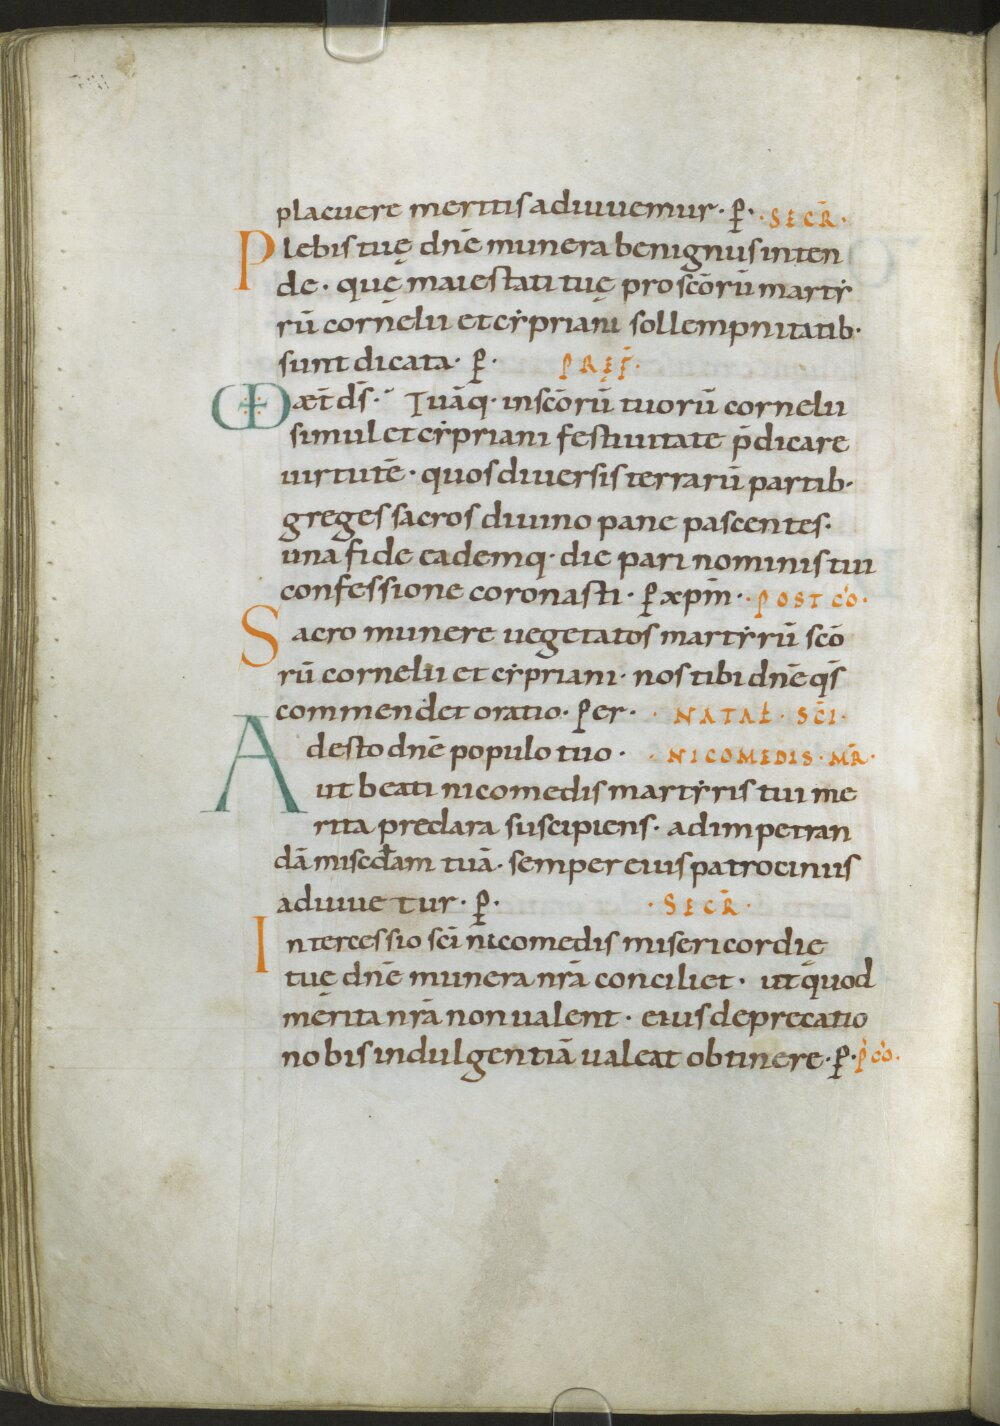 placuere meritis adiuuemur · p̄ · · SECR̄ ·
Plebis tuę dnē munera benignus inten
de · quę maiestati tuę pro scōrū martẏ
rū cornelii et cẏpriani sollempnitatib·
sunt dicata · p̄ · PREF̄ ·
æt̄ ds̄ · Tuāq· in scōrū tuorū cornelii
simul et cẏpriani festiuitate p̄dicare
uirtutē · quos diuersis terrarū partib·
greges sacros diuino pane pascentes ·
una fide eademq· die pari nominis tui
confessione coronasti · p̄ xpm̄ · · POST CO ·
Sacro munere uegetatos martẏrū scō
rū cornelii et cẏpriani · nos tibi dnē qs̄
commendet oratio · Per · · NATAL̄ · SC̄I ·
Adesto dnē populo tuo · · NICOMEDIS · MR̄ ·
ut beati nicomedis martẏris tui me
rita preclara suscipiens · ad impetran
dā miscđam tuā · semper eius patrociniis
adiuuetur · p̄ · · SECR̄ ·
Intercessio scī nicomedis misericordię
tuę dnē munera nrā conciliet · ut quod
merita nrā non ualent · eius deprecatio
nobis indulgentiā ualeat obtinere · p̄ · P CO ·